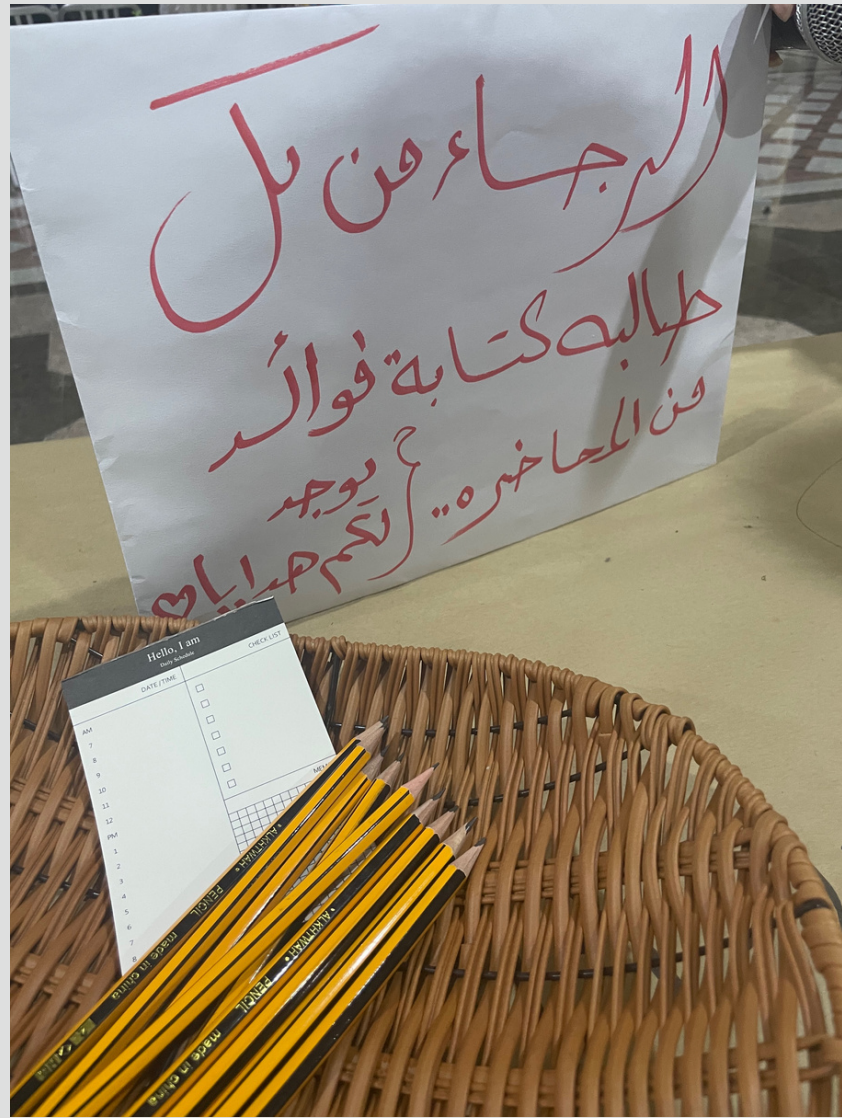 الرجاء من كل
طالبه كتابة فوائد
من المحاضره..
يوجد
لكم هدايا
Hello, I am
Daily Schedule
DATE/TIME
CHECK LIST
AM
7
8
9
10
11
12
PM
1
2
3
4
5
6
7
8
ALKHTWAH
PENCIL
made in china
ALKHTWAH
PENCIL
made in china